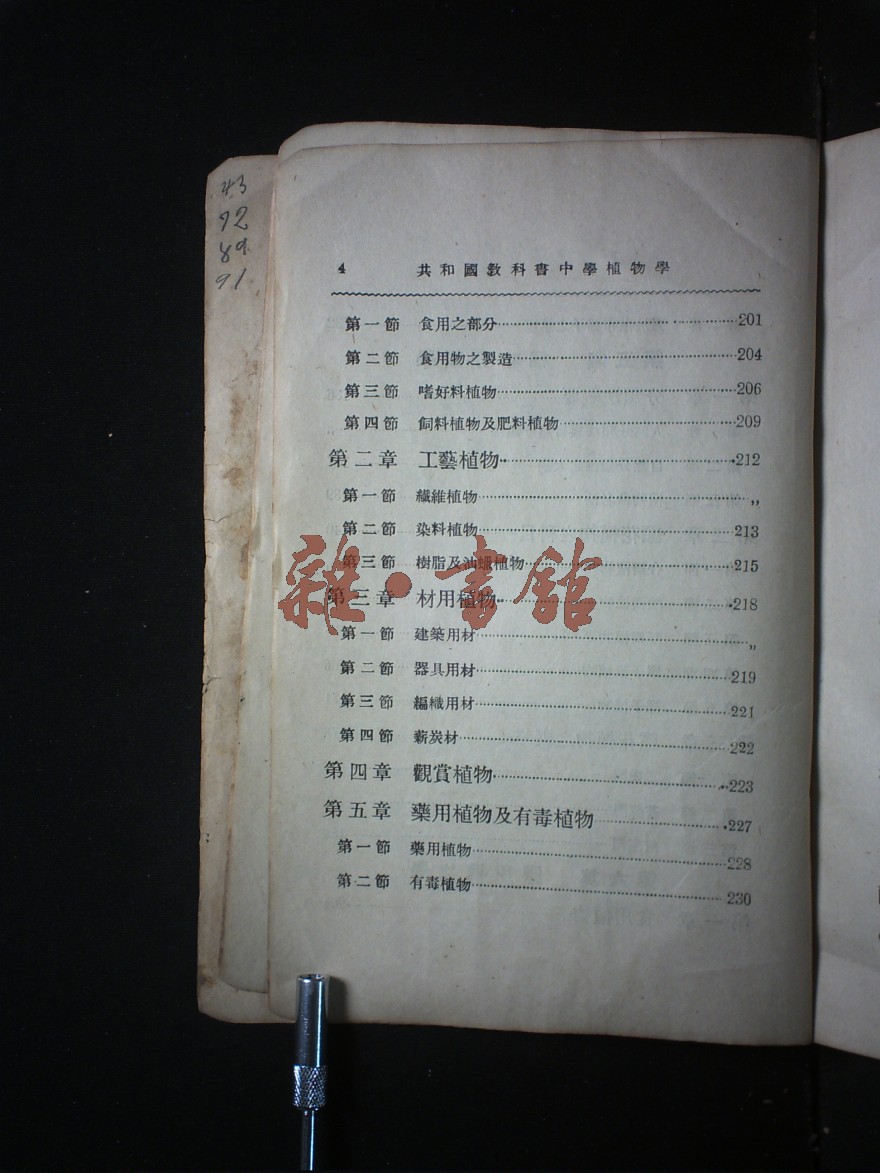 43
92
89
91
4 共和國教科書中學植物學
第一節 食用之部分 201
第二節 食用物之製造 204
第三節 嗜好料植物 206
第四節 飼料植物及肥料植物 209
第二章 工藝植物 212
第一節 纖維植物 ,,
第二節 染料植物 213
第三節 樹脂及油蠟植物 215
雜·書館
第三章 材用植物 218
第一節 建築用材 ,,
第二節 器具用材 219
第三節 編織用材 221
第四節 薪炭材 222
第四章 觀賞植物 223
第五章 藥用植物及有毒植物 227
第一節 藥用植物 228
第二節 有毒植物 230